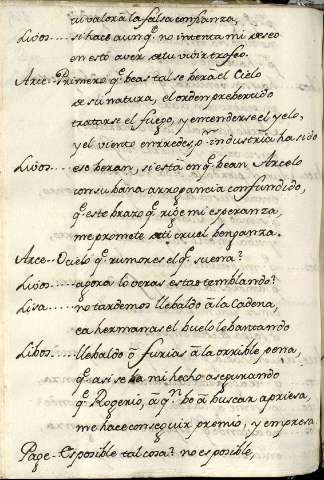 tu valor a la falsa confianza,
Livos.... si hace aunq̃ no intenta mi deseo
en esto aver de tu vivir trofeo.
Arce - Primero q̃ beas tal se bera el Cielo
de su natura, el orden prebertido
tratarse el fuego, y encenderse el yelo,
y el viento en redes, pr industria ha sido
Livos.... eso beran, si està en q̃ bean Arcelo
con su bana arrogancia confundido,
q̃ este brazo q̃ rije mi esperanza,
me promete de ti cruel benganza.
Arce - O cielo q̃ rumores el q̃ suena?
Livos.... agora lo veras estas temblando?
Lisa.... no tardemos llebaldo à la Cadena,
ea hermanas el buelo lebantando
Libos..... llebaldo ò furias à la orrible pena,
q̃ asi se ha mi hecho asegurando
q̃ Rogerio, à qn bo à buscar apriesa,
me hace conseguir premio, y empresa
Page - Es posible tal cosa? no es posible,